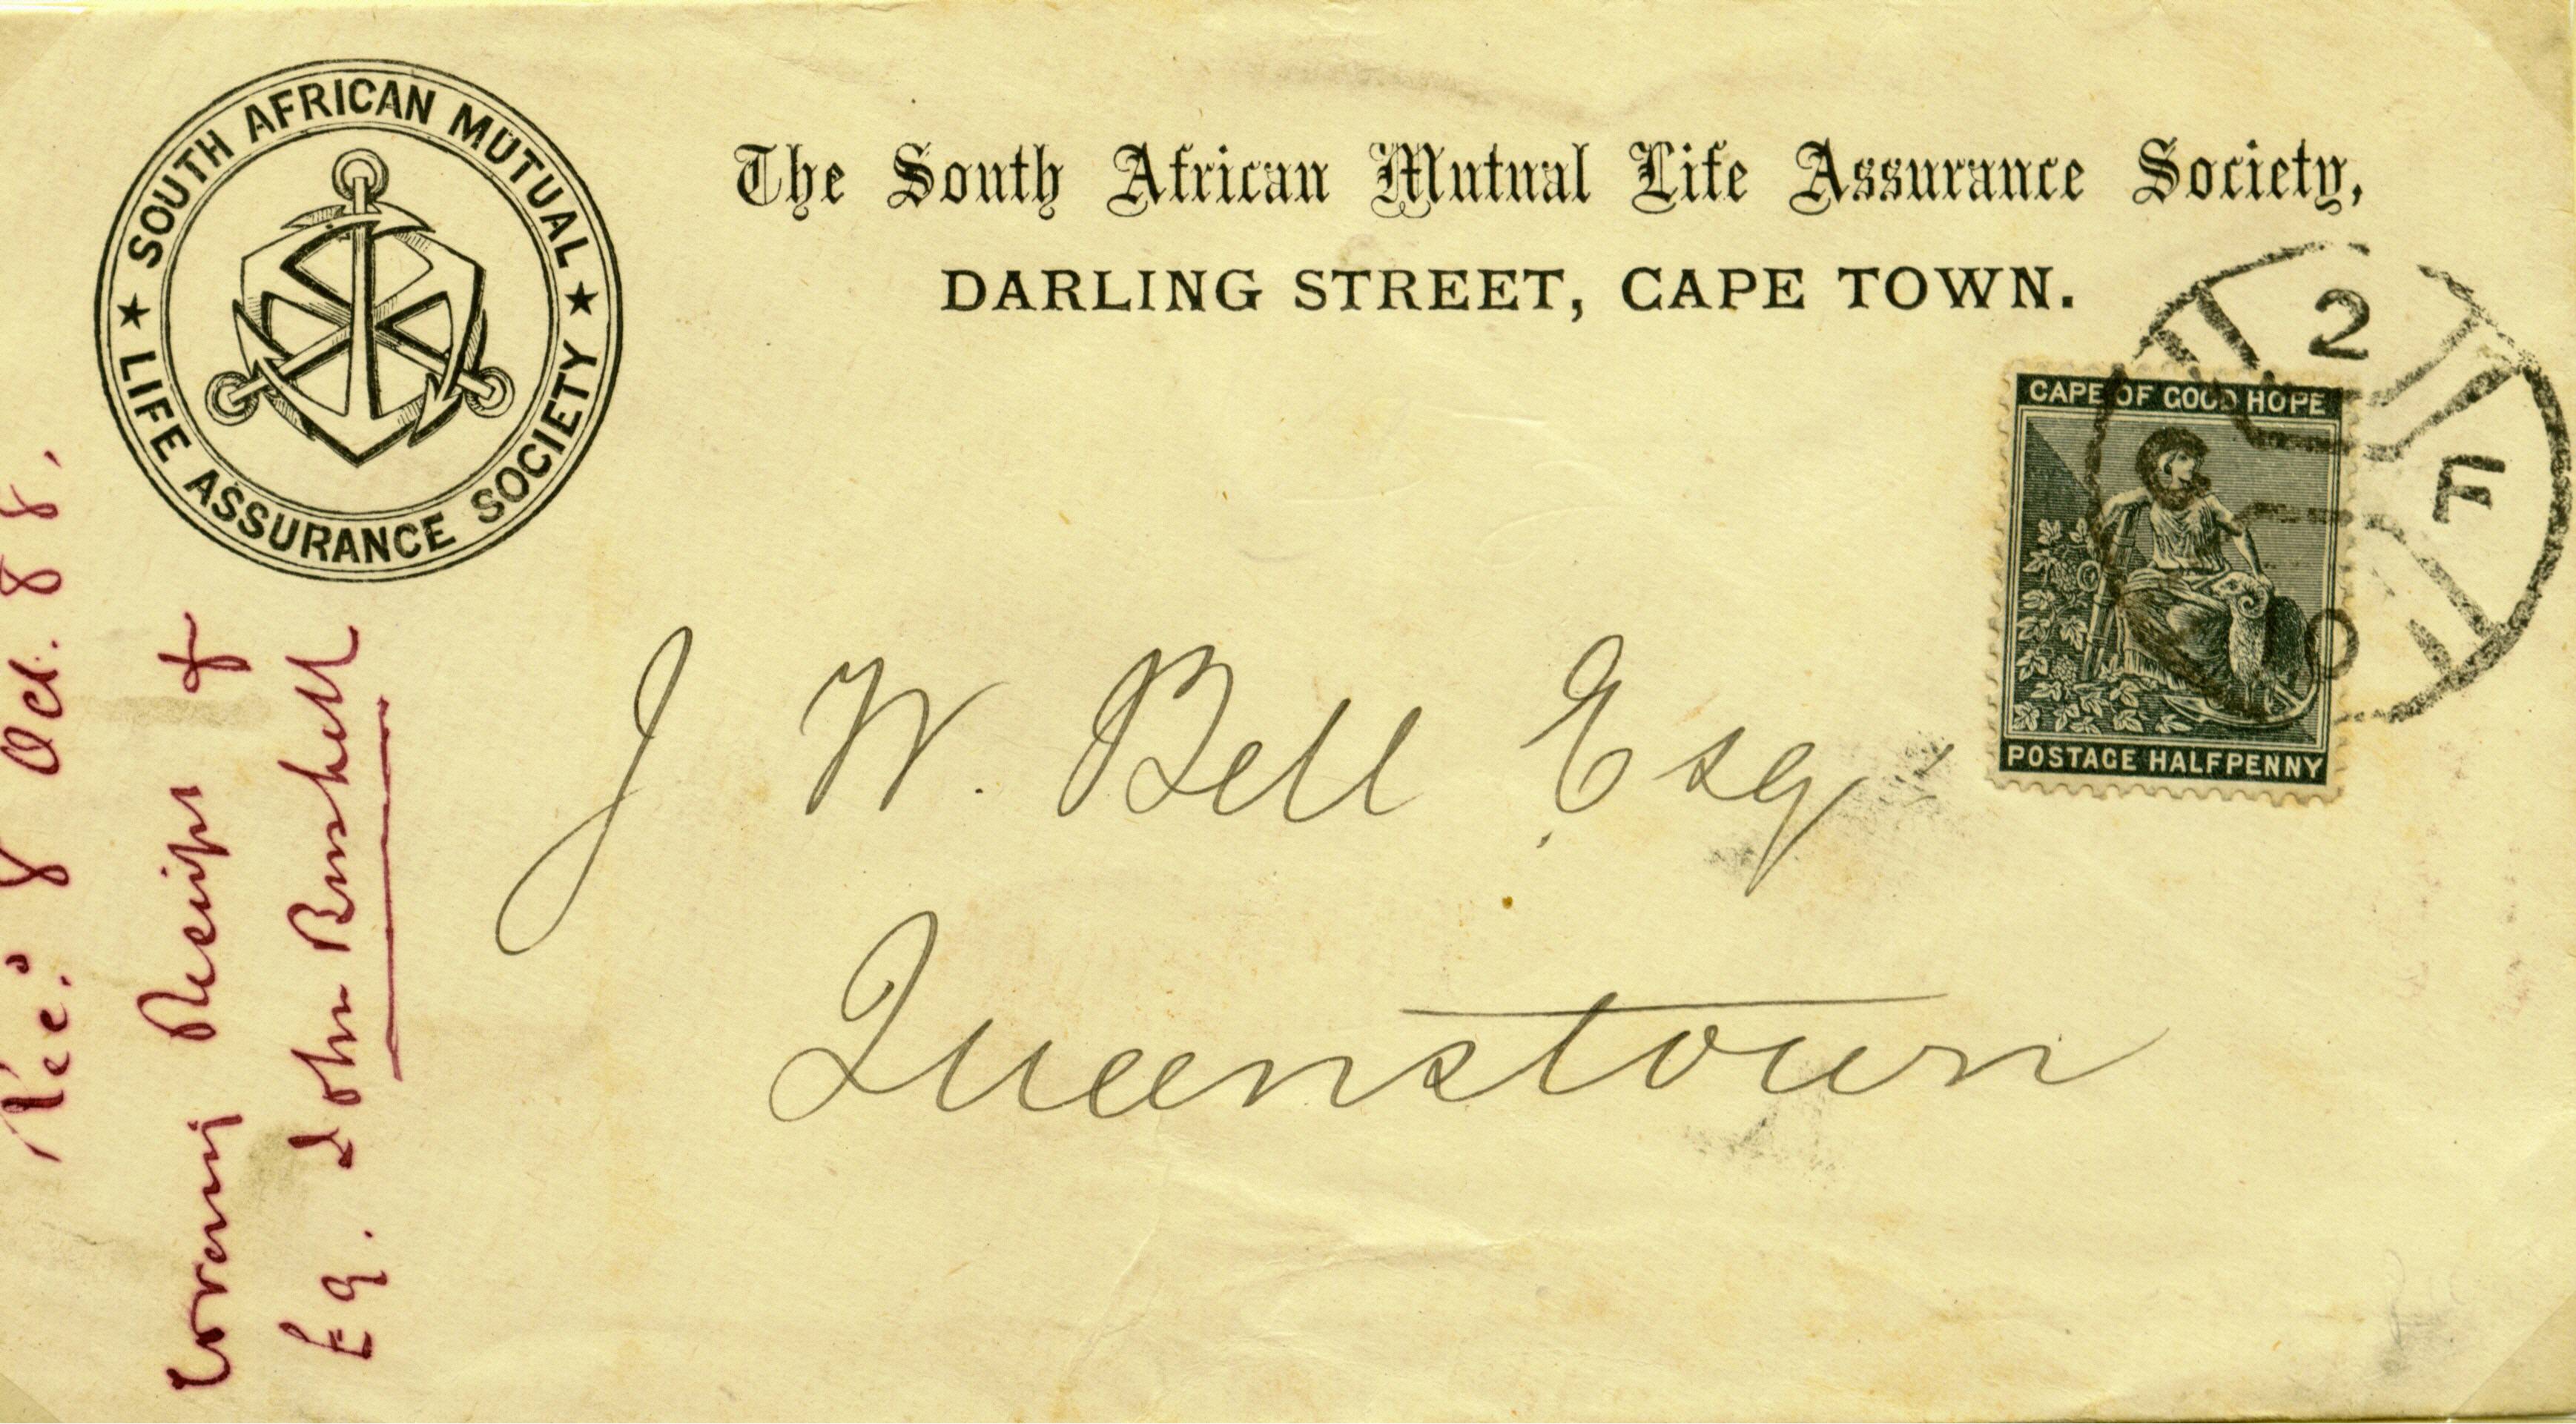 SOUTH AFRICAN MUTUAL
★ LIFE ASSURANCE SOCIETY ★
The South African Mutual Life Assurance Society,
DARLING STREET, CAPE TOWN.
2
F
O
CAPE OF GOOD HOPE
POSTAGE HALFPENNY
J W. Bell Esq
Queenstown
Rec.d 8 Oct. 88,
Covering Receipt &
John